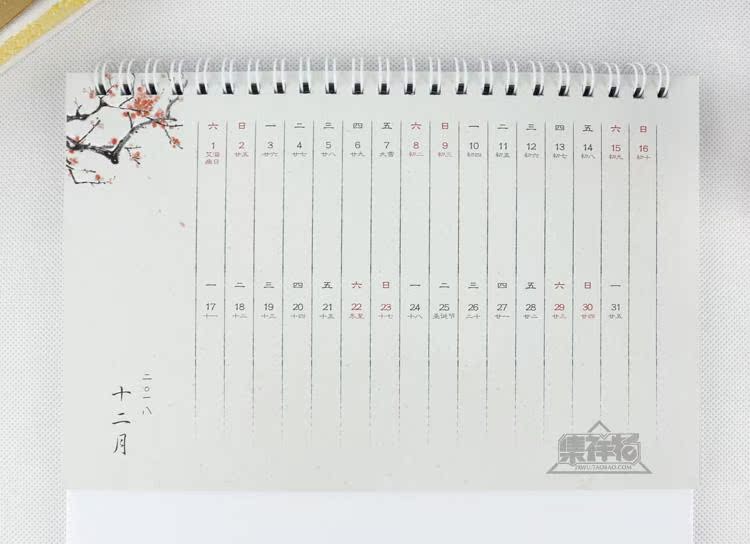 六 日 一 二 三 四 五 六 日 一 二 三 四 五 六 日
1 2 3 4 5 6 7 8 9 10 11 12 13 14 15 16
艾滋 廿五 廿六 廿七 廿八 廿九 大雪 初二 初三 初四 初五 初六 初七 初八 初九 初十
病日
一 二 三 四 五 六 日 一 二 三 四 五 六 日 一
17 18 19 20 21 22 23 24 25 26 27 28 29 30 31
十一 十二 十三 十四 十五 冬至 十七 十八 圣诞节 二十 廿一 廿二 廿三 廿四 廿五
二〇一八
十二月
集祥杨
JXWU.TAOBAO.COM